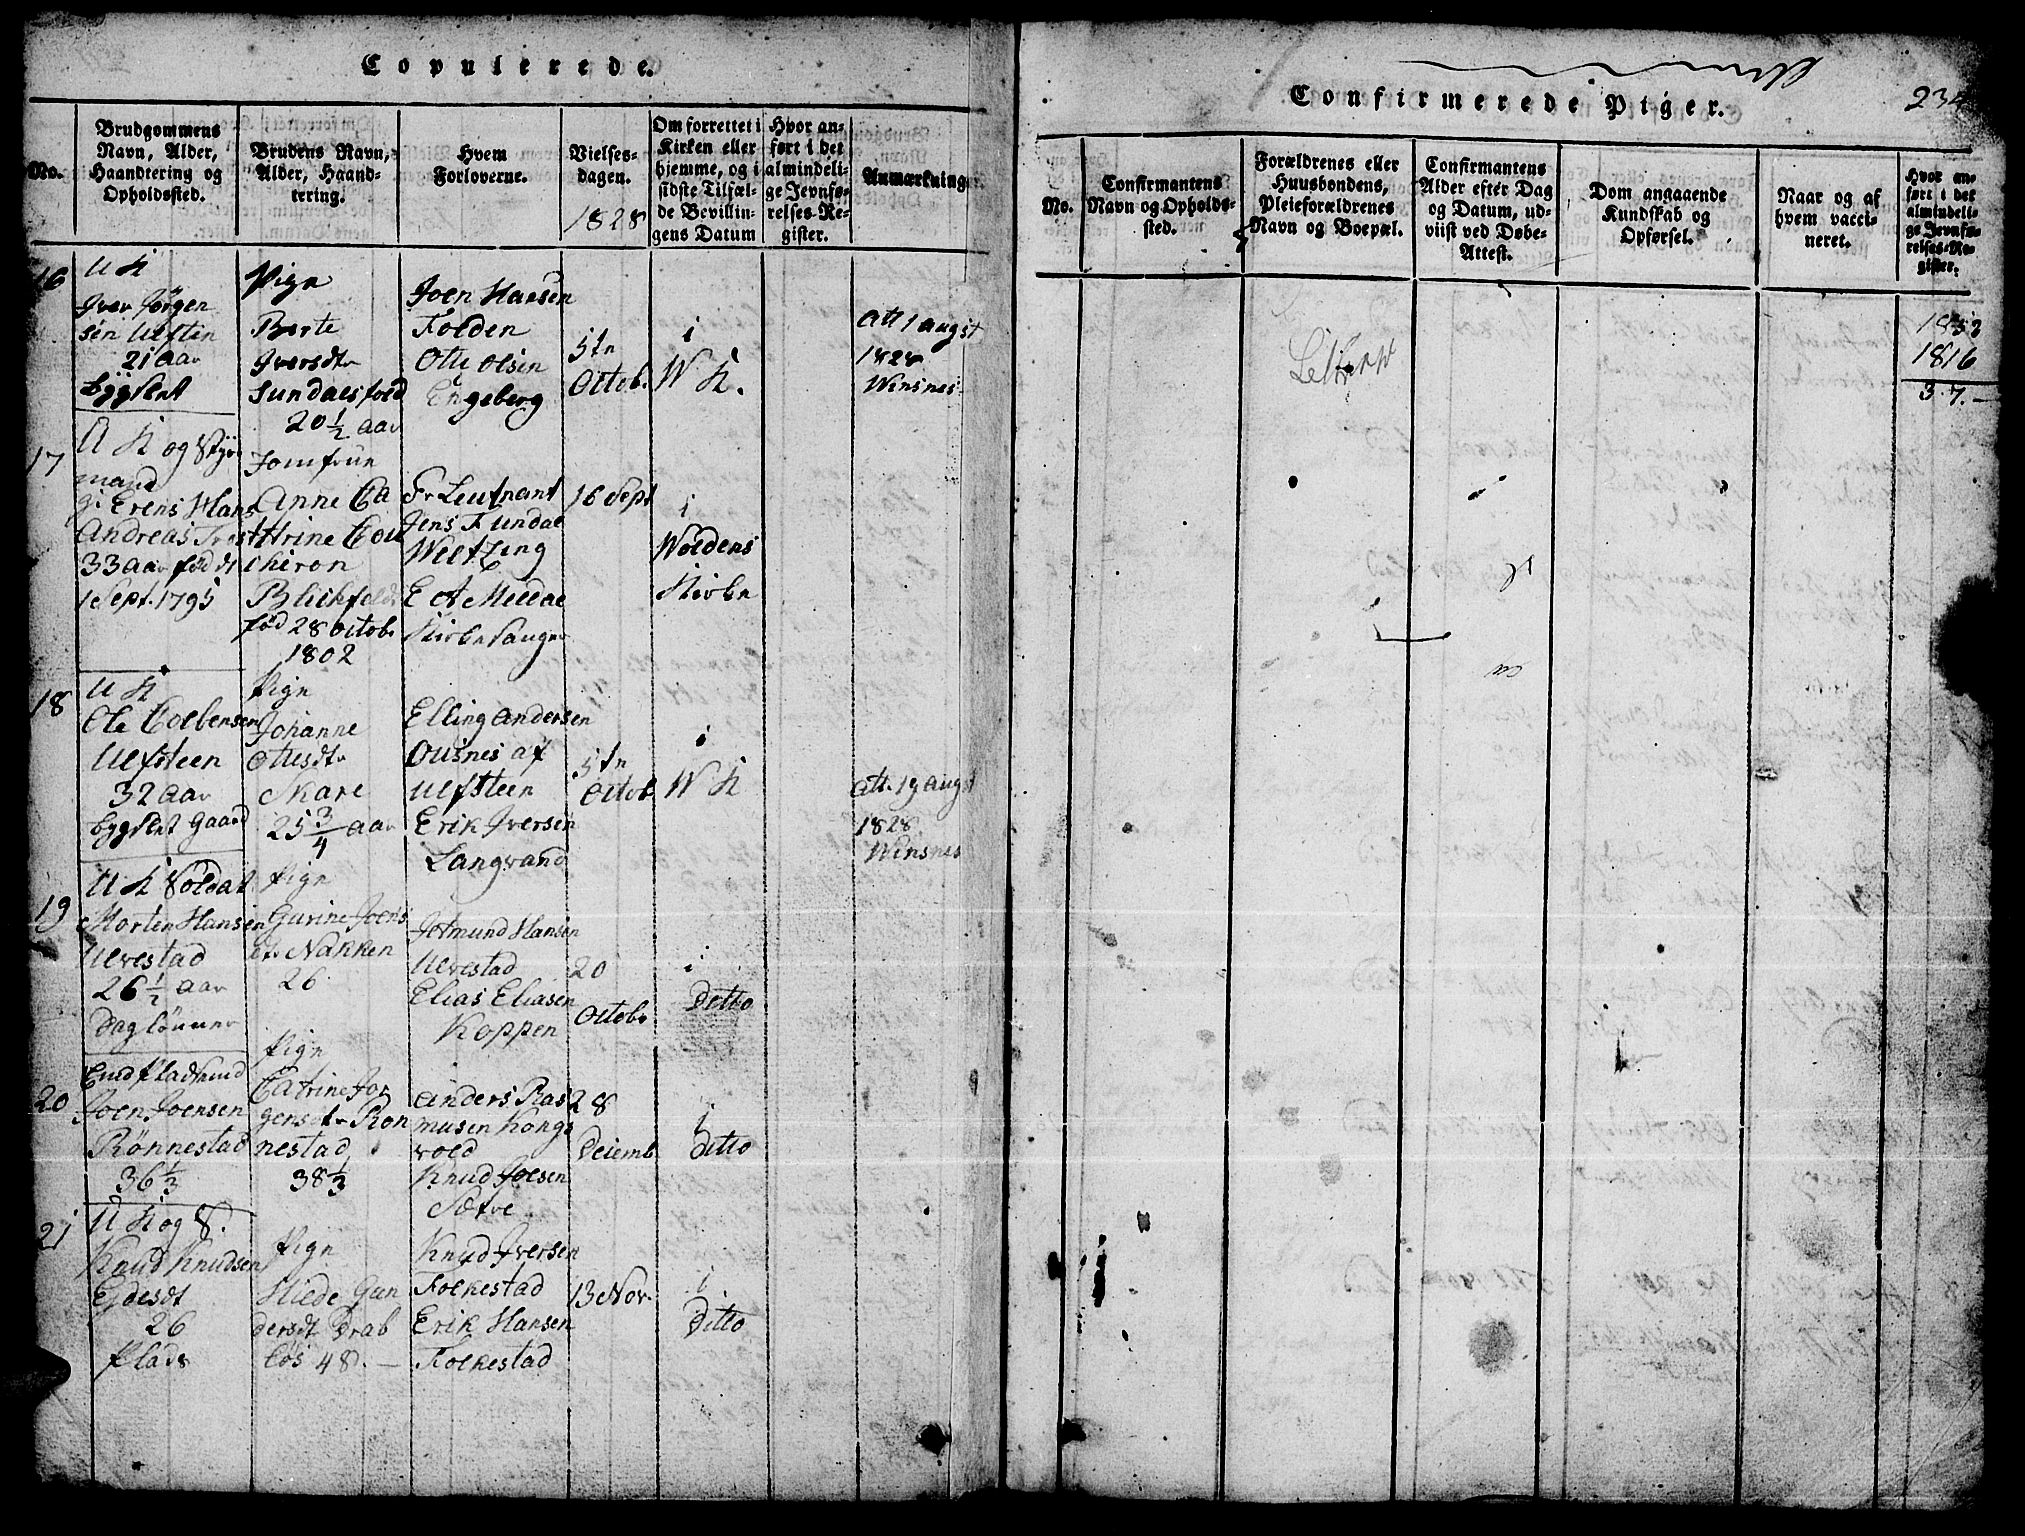 Copulerede.
No.
Brudgommens
Navn, Alder,
Haandtering og
Opholdssted.
Brudens Navn,
Alder, Haand-
tering.
Hvem
Forloverne.
Vielses-
dagen.
1828
Om forrettet i
Kirken eller
hjemme, og i
sidste Tilfæl-
de Bevillin-
gens Datum
Hvor an-
ført i det
almindeli-
ge Jevnfø-
relses-Re-
gister.
Anmærkning
16
U K
Iver Jørgen
sen Ulfsten
21 aar
Bygslet
Pige
Berte
Iversdtr
Sundalsfold
20 1/2 aar
Joen Hansen
Folden
Otte Olsen
Engeberg
5te
Octob.
i
W K.
att 1 augst
1828
Winsnes
17
U K og Styr
mand
Hans
Andreas
33 aar fød d
1 Sept. 1795
Jomfrue
Anne Ca
thrine Cou
cheron
Blichfeldt
fød 28 Octobr
1802
Fr Leutnant
Jens Fundal
Weltzing
E A Meldal
Kirke Sanger
16 Sept
i
Woldens
Kirke
18
U K
Ole Colbensen
Ulfsteen
32 aar
bygslet Gaard
Pige
Johanne
Skare
25 3/4 aar
Elling Andersen
Ousnes af
Ulfsteen
Erik Iversen
Langvand
5te
Octob
i
W K
att. 19 augst
1828
Winsnes
19
U K Soldat
Morten Hansen
Ulvestad
26 1/2 aar
Daglønner
Pige
Gurine Joens
dtr Nakken
26
Jetmund Hansen
Ulvestad
Elias Eliasen
Koppen
20
Octobr
i
Ditto
20
Joen Joensen
Rønnestad
36 1/3
Pige
Catrine Jør
gensdtr Røn
nestad
38 1/3
Anders Ras
musen Kongs
vold
Knud Joesen
Sætre
28
Decemb
i
Ditto
21
U K og S.
Knud Knudsen
Eidesdt
26
Plads
Pige
Hilde Gun
dersdt Drab
løs 48. —
Knud Iversen
Folkestad
Erik Hansen
Folkestad
13 Nov.
i
Ditto
Confirmerede Piger.
234
No.
Confirmantens
Navn og Opholds-
sted.
Forældrenes eller
Huusbondens,
Pleieforældrenes
Navn og Boepæl.
Confirmantens
Alder efter Dag
og Datum, ud-
viist ved Døbe-
Attest.
Dom angaaende
Kundskab og
Opførsel.
Naar og af
hvem vacci-
neret.
Hvor an-
ført i det
almindeli-
ge Jevnfø-
relses-Re-
gister.
1853
1816
37. —